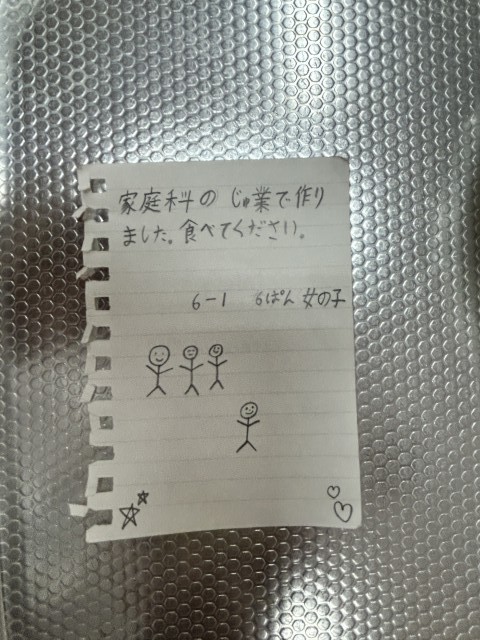 家庭科の じゅ業で作り
ました。食べてください。
6-1 6ぱん 女の子